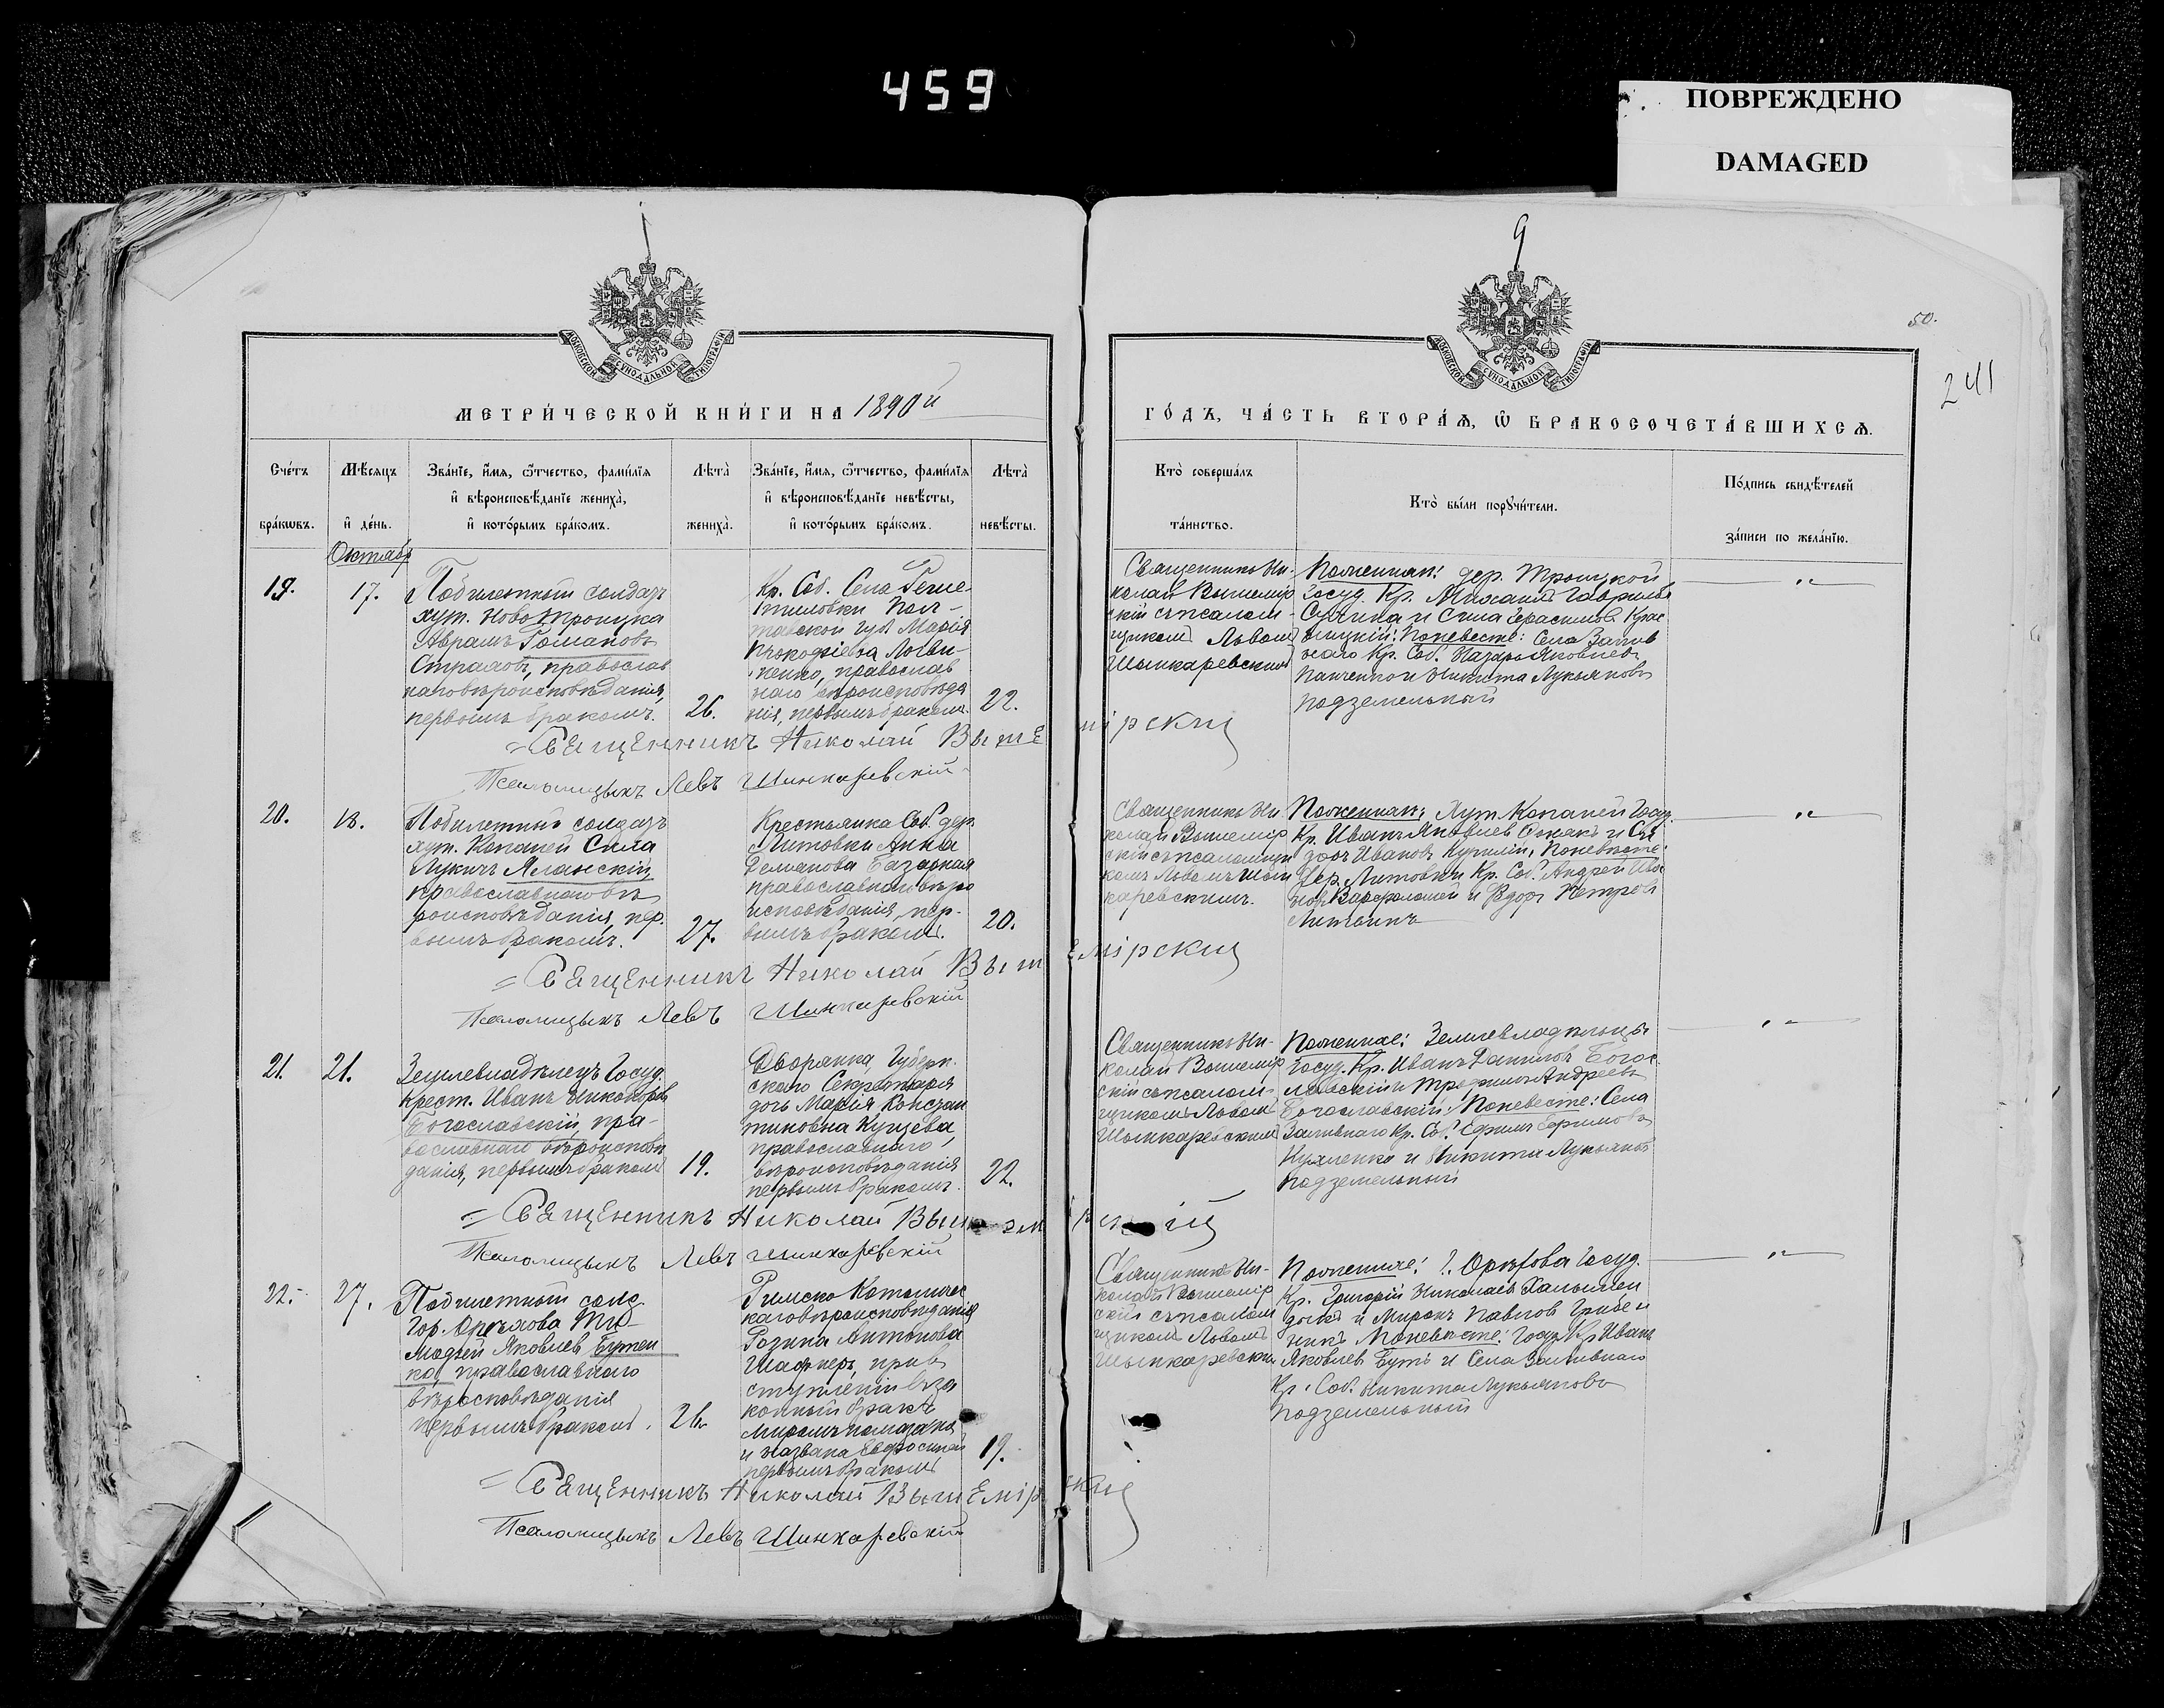 459
ПОВРЕЖДЕНО
DAMAGED
9
50.
241
МОСКОВСКОЙ СѴНОДАЛЬНОЙ ТИПОГРАФІИ
МОСКОВСКОЙ СѴНОДАЛЬНОЙ ТИПОГРАФІИ
МЕТРИ́ЧЕСКОЙ КНИ́ГИ НА 1890й
ГО́ДЪ, ЧА́СТЬ ВТОРА́Ѧ, Ѽ БРАКОСОЧЕТА́ВШИХСѦ.
Сче́тъ бра́кѡвъ.
Мѣ́сѧцъ и҆ де́нь.
Зва́нїе, и҆́мѧ, ѻ҆́тчество, фами́лїѧ
и҆ вѣроисповѣ́данїе жениха̀,
и҆ кото́рымъ бра́комъ.
Лѣта̀ жениха̀.
Зва́нїе, и҆́мѧ, ѻ҆́тчество, фами́лїѧ
и҆ вѣроисповѣ́данїе невѣ́сты,
и҆ кото́рымъ бра́комъ.
Лѣта̀ невѣ́сты.
Кто̀ соверша́лъ
та́инство.
Кто̀ бы́ли порꙋчи́тели.
По́дпись свидѣ́телей
за́писи по жела́нїю.
Октябр
19.
17.
Побилетный солдатъ
хут. Ново Троицка
Аврамъ Романовъ
Страховъ, православ
наго вѣроисповѣданія,
первымъ бракомъ.
26.
Кр. Соб. Села Реше
тиловки Пол-
тавской губ. Марія
Прокофіева Логви-
ненко, православ
наго вѣроисповѣда
нія, первымъ бракомъ.
22.
Священникъ Ни-
колай Вышемір
скій съ псалом-
щикомъ Львомъ
Шынкаревскимъ
По женихѣ: дер. Троицкой
Госуд. Кр. Михаилъ Гаврилов
и Сила Герасимовъ
По невесте: Села Залив
наго Кр. Соб. Назаръ Яковлевъ
Панченко и Никита Лукьяновъ
Подземельный
Священникъ Николай Вышемірскій
Псаломщыкъ Левъ Шинкаревскій
20.
18.
Побилетный солдатъ
хут. Копаней Сила
Лукичъ Яланскій,
православнаго вѣ
роисповѣданія, пер.
вымъ бракомъ.
27.
Крестьянка Соб. дер.
Литовки Анна
Демьянова Базарная
православнаго вѣро
исповѣданія, пер-
вымъ бракомъ.
20.
Священникъ Ни
колай Вышемір
скій съ псаломщи
комъ Львомъ Шын
каревскимъ.
По женихѣ: Хут. Копаней Госуд.
Кр. Иванъ Яковлев
доръ Ивановъ По невѣсте:
Дер. Литовки Кр. Соб. Андрей Ива
новъ Варфоломей и Ѳедоръ Петровъ
Литвинъ
Священникъ Николай Вышемірскій
Псаломщыкъ Левъ Шинкаревскій
21.
21.
Землевладѣлецъ Госуд.
Крест. Иванъ Никифоров
Богославскій, пра-
вославнаго вѣроисповѣ
данія, первымъ бракомъ
19.
Дворянка, Губерн-
скаго Секретаря
дочь Марія Констан
тиновна Купцева,
православнаго
вѣроисповѣданія
первымъ бракомъ.
22.
Священникъ Ни-
колай Вышемір
скій съ псалом-
щикомъ Львомъ
Шынкаревскимъ
По женихе: Землевладѣльцы
Госуд. Кр. Иванъ Даниловъ Богос
лавскій и Трофимъ Андреевъ
Богославскій: По невесте: Села
Заливнаго Кр. Соб. Ефимъ Ефимовъ
Кухленко и Никита Лукьяновъ
Подземельный
Священникъ Николай Вышемірскій
Псаломщыкъ Левъ Шинкаревскій
22.
27.
Побилетный солд.
Гор. Орѣхова Ти-
мофей Яковлев Бутен
ко, православнаго
вѣроисповѣданія
первымъ бракомъ.
26.
Римско Католичес
каго вѣроисповѣданія
Розина Антонова
Шафнеръ, при в
ступленіи въ за
конный бракъ
миромъ помазана
и названа Евфросиніей
первымъ бракомъ
19.
Священникъ Ни-
колай Вышемір
скій съ псалом
щикомъ Львомъ
Шынкаревским
По женихе: Г. Орѣхова Госуд.
Кр. Григорій Николаев
и Миронъ Павловъ Гребе н
никъ По невѣсте: Госуд. Кр. Иванъ
Яковлев Бутъ и Села Заливнаго
Кр. Соб. Никита Лукьяновъ
Подземельный
Священникъ Николай Вышемірскій
Псаломщыкъ Левъ Шинкаревскій